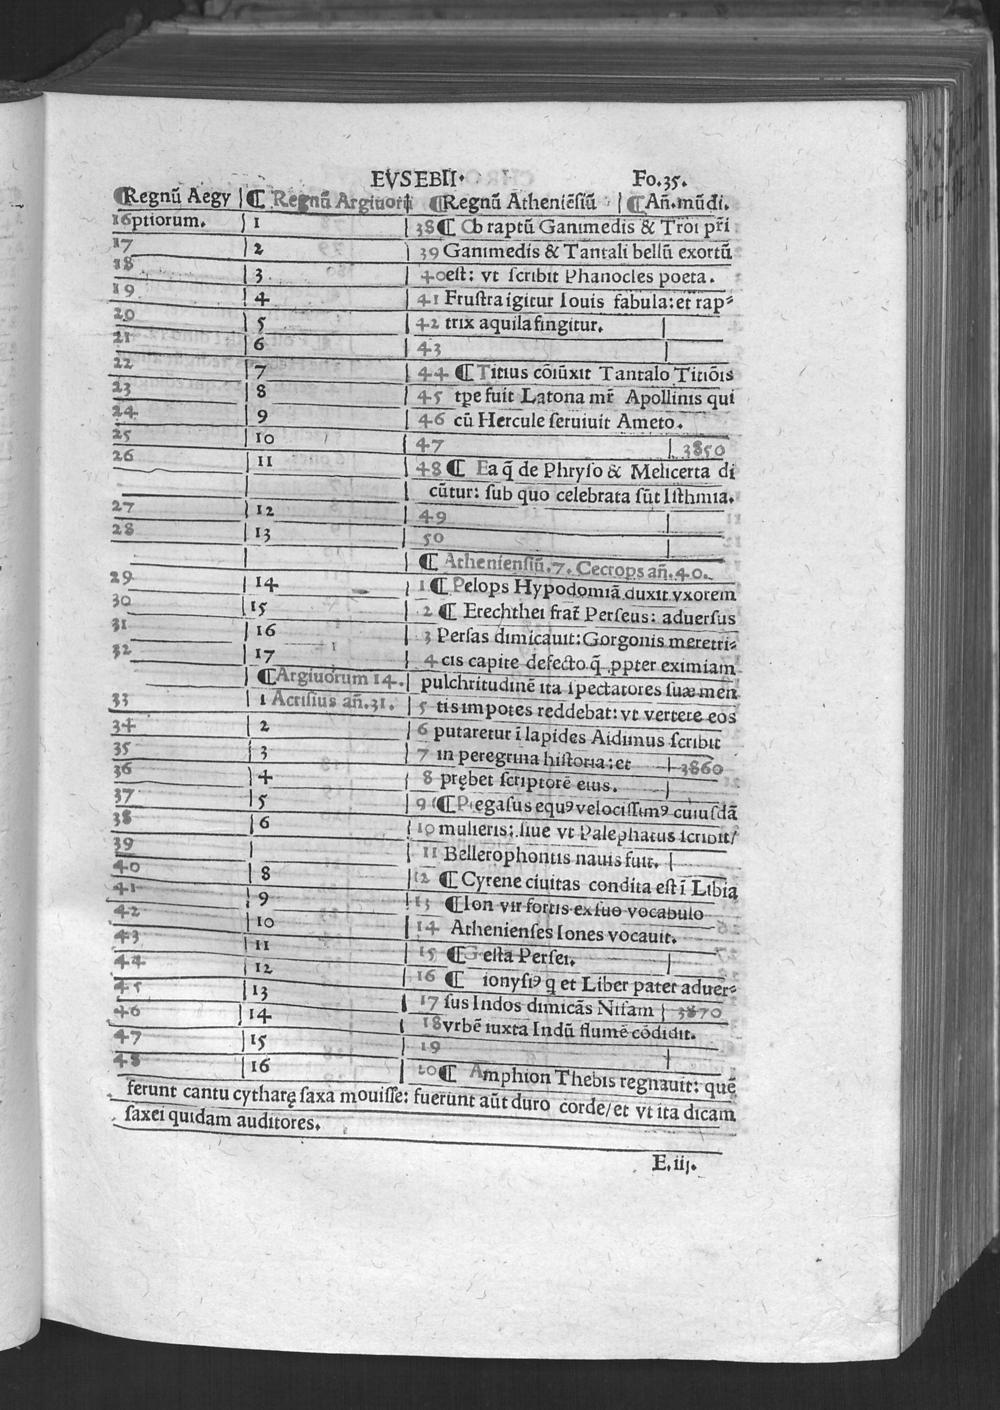 EVSEBII. Fo.35.
¶Regnũ Aegy | ¶ Regnũ Argiuorũ ¶Regnũ Atheniẽsiũ | ¶Añ.mũdi.
16ptiorum. | 1 |38¶ Ob raptũ Ganimedis & Troi pr̃i
17 | 2 | 39 Ganimedis & Tantali bellũ exortũ
18 | 3 | 40est: vt scribit Phanocles poeta.
19 | 4 | 41 Frustra igitur Iouis fabula: et rap⸗
20 | 5 | 42 trix aquila fingitur. |
21 | 6 | 43 |
22 | 7 | 44 ¶Titius cõiũxit Tantalo Titiõis
23 | 8 | 45 tpe fuit Latona mr̃ Apollinis qui
24 | 9 | 46 cũ Hercule seruiuit Ameto.
25 | 10 | 47 | 3850
26 | 11 | 48¶ Ea q̃ de Phryso & Melicerta di
| | cũtur: sub quo celebrata sũt Isthmia.
27 | 12 | 49 |
28 | 13 | 50 |
| | ¶ Atheniensiũ.7. Cecrops añ.40.
29 | 14 | 1¶ Pelops Hypodomiã duxit vxorem
30 | 15 | 2¶ Erechthei frat̃ Perseus: aduersus
31 | 16 | 3 Persas dimicauit: Gorgonis meretri⸗
32 | 17 | 4 cis capite defecto q̃ ꝓpter eximiam
| ¶Argiuorum 14.| pulchritudinẽ ita spectatores suæ men
33 | 1 Acrisius añ.31. | 5 tis impotes reddebat: vt vertere eos
34 | 2 | 6 putaretur ĩ lapides Aidimus scribit
35 | 3 | 7 in peregrina historia: et | 3860
36 | 4 | 8 prębet scriptorẽ eius. |
37 | 5 | 9 ¶Pegasus equꝰ velocissimꝰ cuiusdã
38 | 6 | 10 mulieris: siue vt Palephatus scribit/
39 | | 11 Bellerophontis nauis fuit. |
40 | 8 |12 ¶ Cyrene ciuitas condita est ĩ Libia
41 | 9 | 13 ¶Ion vir fortis ex suo vocabulo
42 | 10 | 14 Athenienses Iones vocauit.
43 | 11 | 15 ¶Gesta Persei. |
44 | 12 | 16 ¶ ionysiꝰ q et Liber pater aduer⸗
45 | 13 | 17 sus Indos dimicãs Nisam | 3870
46 | 14 | 18vrbẽ iuxta Indũ flumẽ cõdidit.
47 | 15 | 19 |
48 | 16 | 20¶ Amphion Thebis regnauit: quẽ
ferunt cantu cytharę saxa mouisse: fuerunt aũt duro corde/et vt ita dicam
saxei quidam auditores.
E.iij.